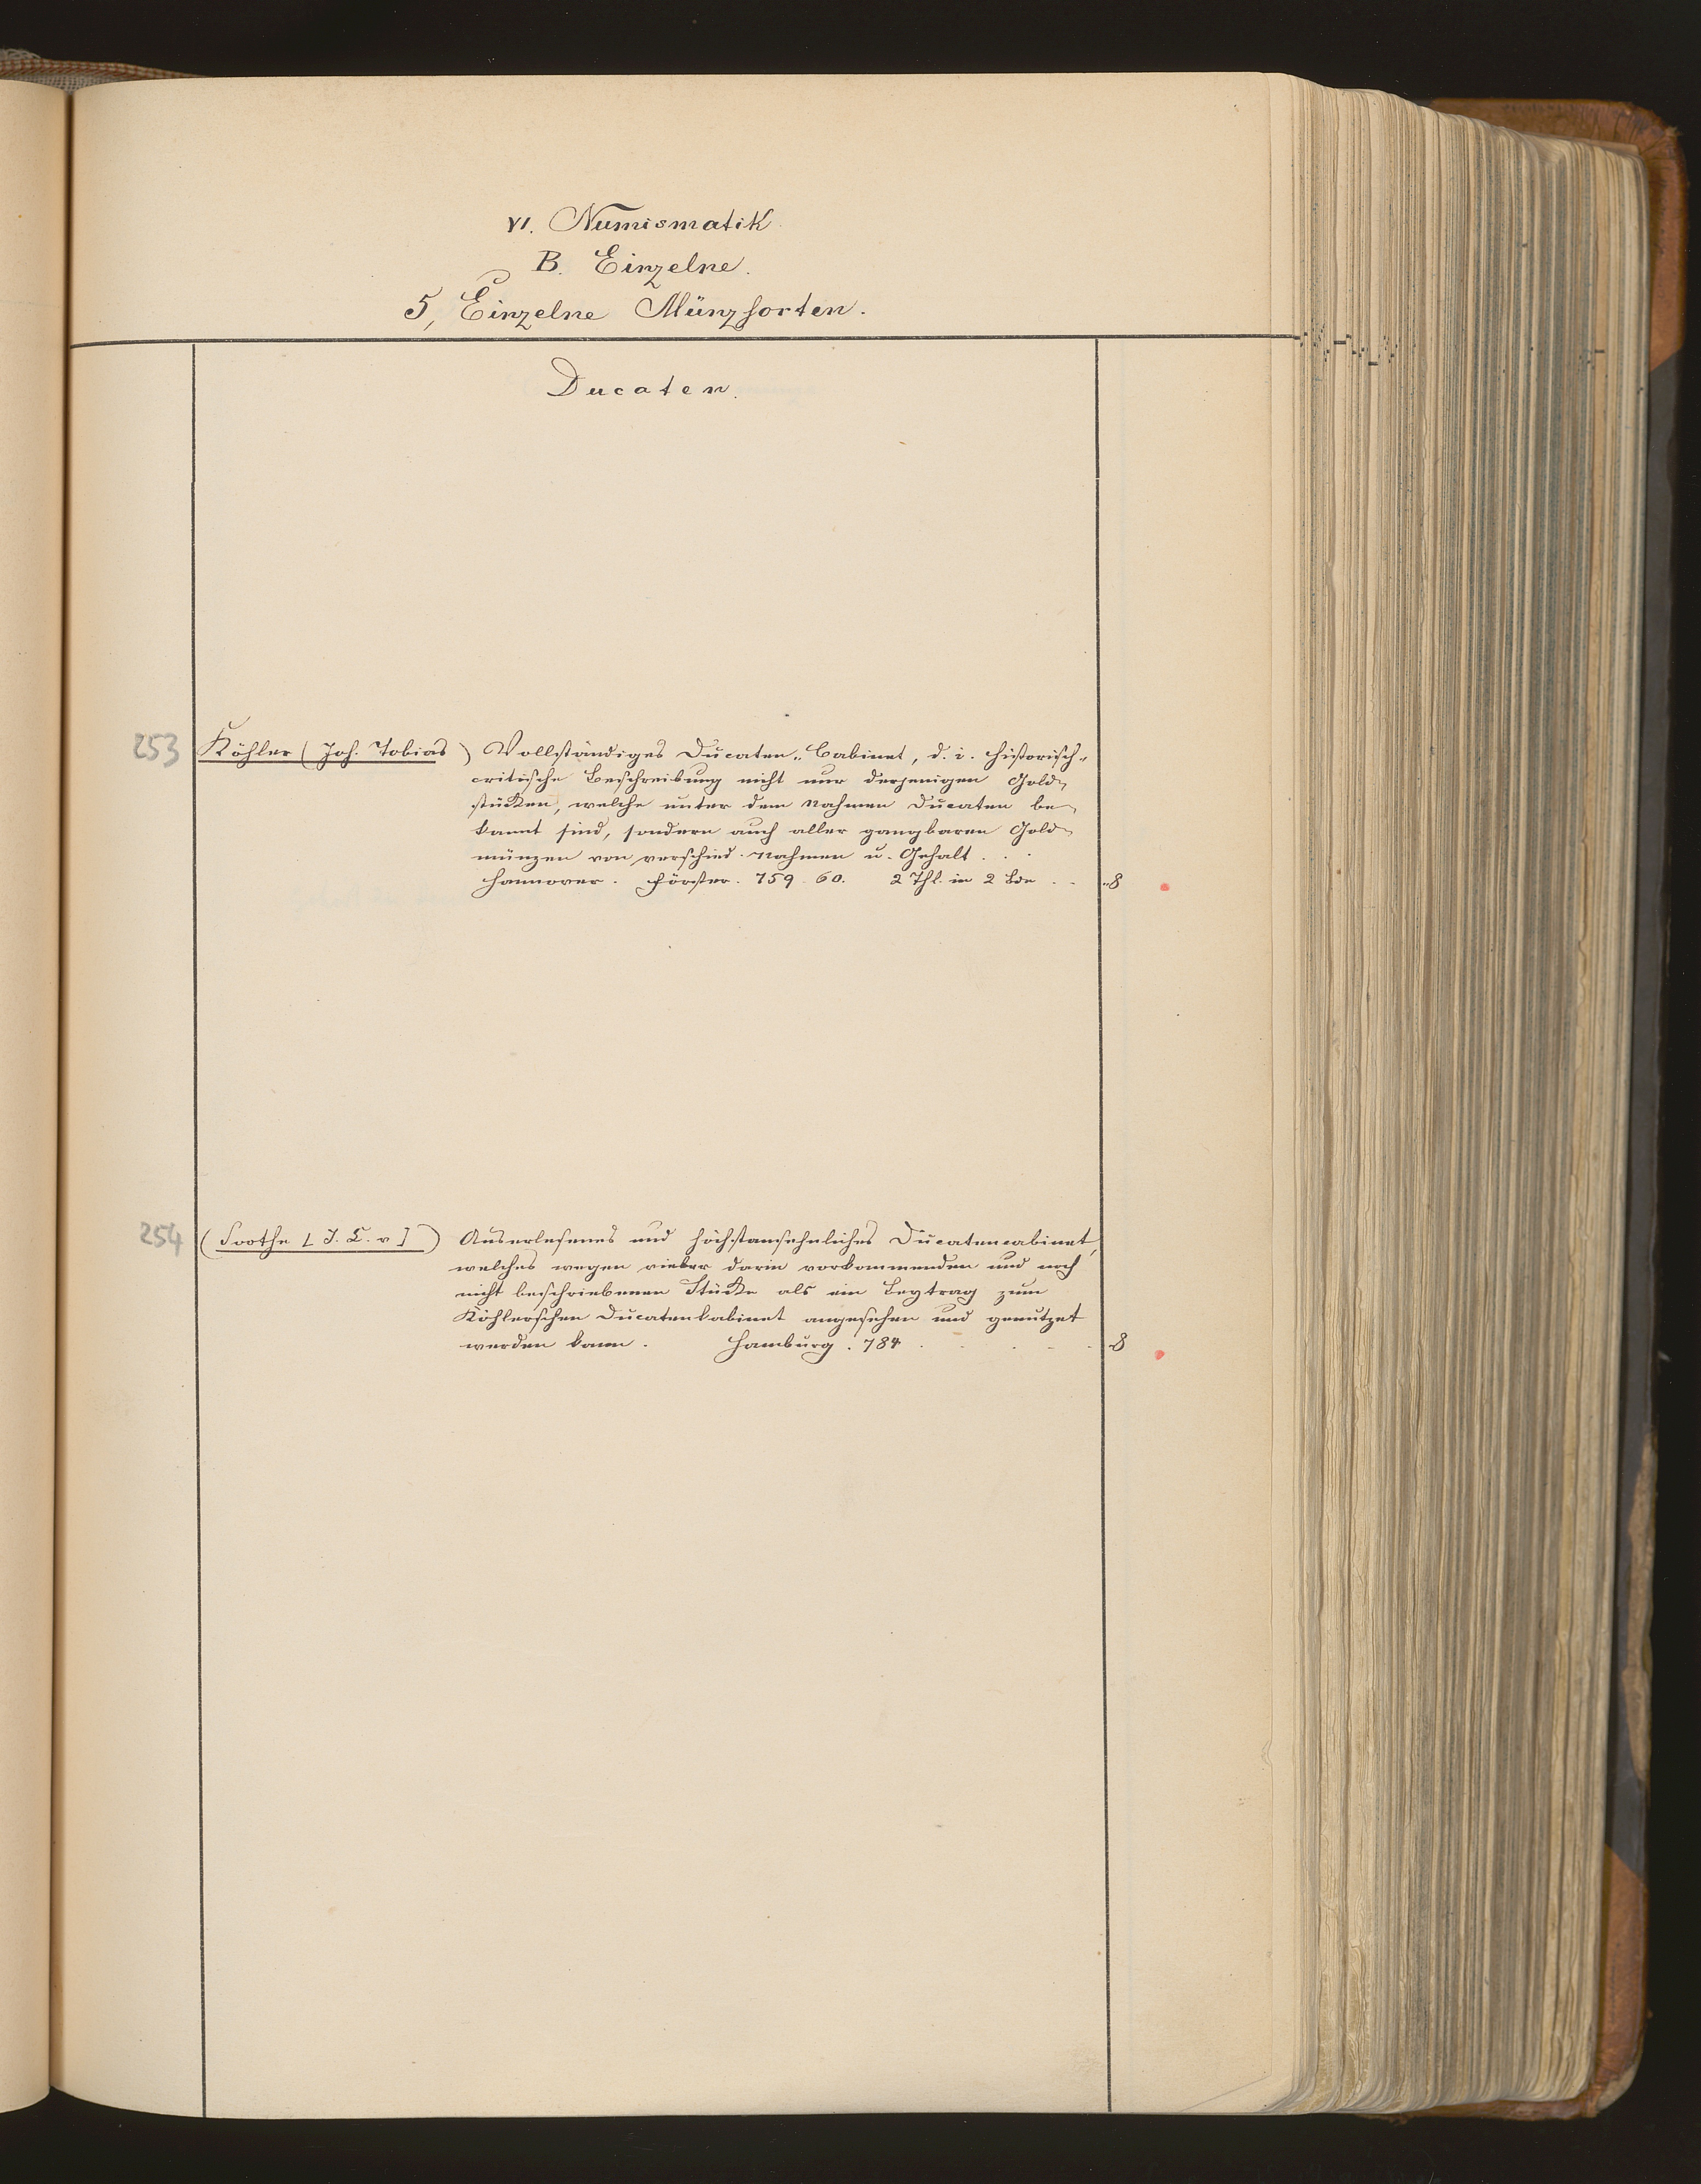 VI. Numismatik.
B. Einzelne.
5, Einzelne Münzsorten.
Ducaten.
253 Köhler (Joh. Tobias) Vollständiges Ducaten-Cabinet, d. i. historisch-
critische Beschreibung nicht nur derjenigen Gold-
stücken, welche unter dem Nahmen Ducaten be-
kannt sind, sondern auch aller gangbaren Gold-
münzen von verschied. Nahmen u. Gehalt . . .
Hannover. Förster. 759. 60. 2 Thl. in 2 Bde . . 8
254 (Soothe [J. C. v]) Auserlesenes und höchstansehnliches Ducatencabinet,
welches wegen vieler darin vorkommenden und noch
nicht beschriebenen Stücke als ein Beytrag zum
Köhlerschen Ducatenkabinet angesehen und genutzet
werden kann. Hamburg. 784 . . . . . 8